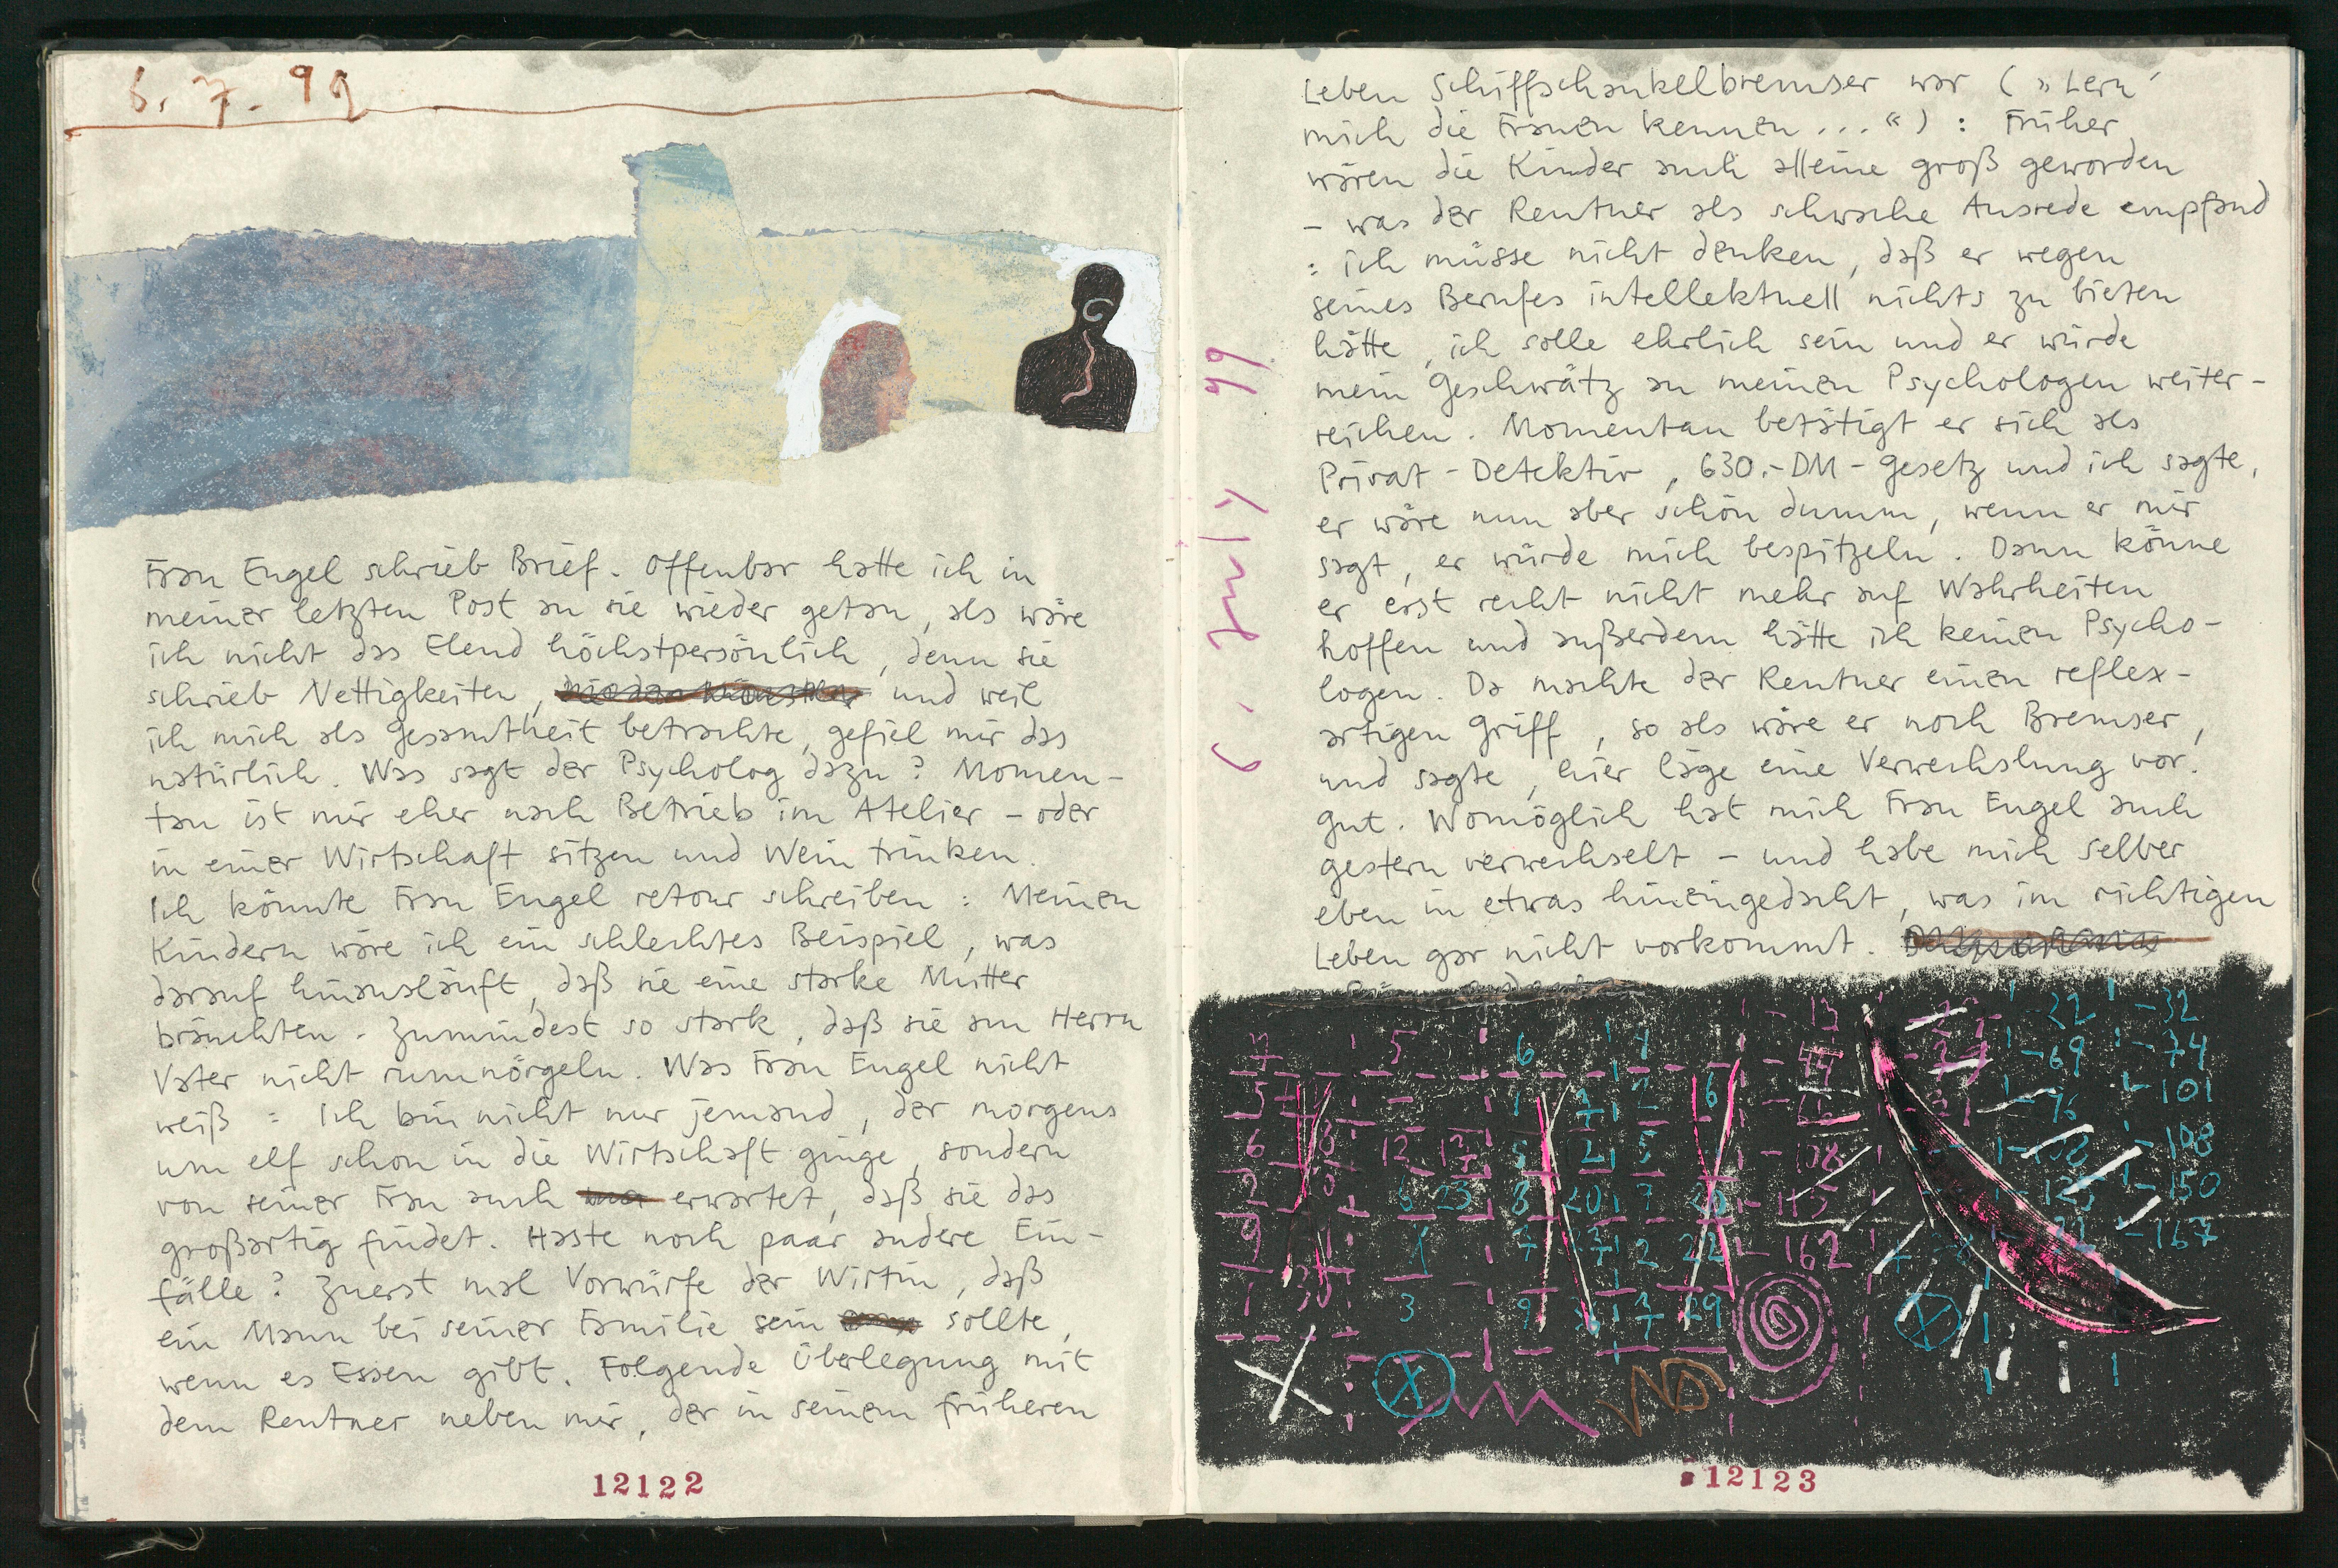 6. 7. 99
Frau Engel schrieb Brief. Offenbar hatte ich in
meiner letzten Post an sie wieder getan, als wäre
ich nicht das Elend höchstpersönlich, denn sie
schrieb Nettigkeiten, und weil
ich mich als Gesamtheit betrachte, gefiel mir das
natürlich. Was sagt der Psycholog dazu? Momen-
tan ist mir eher nach Betrieb im Atelier – oder
in einer Wirtschaft sitzen und Wein trinken.
Ich könnte Frau Engel retour schreiben: Meinen
Kindern wäre ich ein schlechtes Beispiel, was
darauf hinausläuft, daß sie eine starke Mutter
bräuchten. Zumindest so stark, daß sie am Herrn
Vater nicht rumnörgeln. Was Frau Engel nicht
weiß: Ich bin nicht nur jemand, der morgens
um elf schon in die Wirtschaft ginge, sondern
von seiner Frau auch erwartet, daß sie das
großartig findet. Haste noch paar andere Ein-
fälle? Zuerst mal Vorwürfe der Wirtin, daß
ein Mann bei seiner Familie sein sollte,
wenn es Essen gibt. Folgende Überlegung mit
dem Rentner neben mir, der in seinem früheren
12122
6. July 99
Leben Schiffschaukelbremser war (»Lern'
mich die Frauen kennen...«): Früher
wären die Kinder auch alleine groß geworden
– was der Rentner als schwache Ausrede empfand
: ich müsse nicht denken, daß er wegen
seines Berufes intellektuell nichts zu bieten
hätte, ich solle ehrlich sein und er würde
mein Geschwätz an meinen Psychologen weiter-
reichen. Momentan betätigt er sich als
Privat-Detektiv, 630.-DM-Gesetz und ich sagte,
er wäre nun aber schön dumm, wenn er mir
sagt, er würde mich bespitzeln. Dann könne
er erst recht nicht mehr auf Wahrheiten
hoffen und außerdem hätte ich keinen Psycho-
logen. Da machte der Rentner einen reflex-
artigen Griff, so als wäre er noch Bremser,
und sagte, hier läge eine Verwechslung vor.
Gut. Womöglich hat mich Frau Engel auch
gestern verwechselt – und habe mich selber
eben in etwas hineingedacht, was im richtigen
Leben gar nicht vorkommt.
5 6 4 -13 -22 -32
-44 -69 -74
6 -101
12 -108
6 23 8 20 7 -115 -150
2 22 -162 -167
3 9
12123